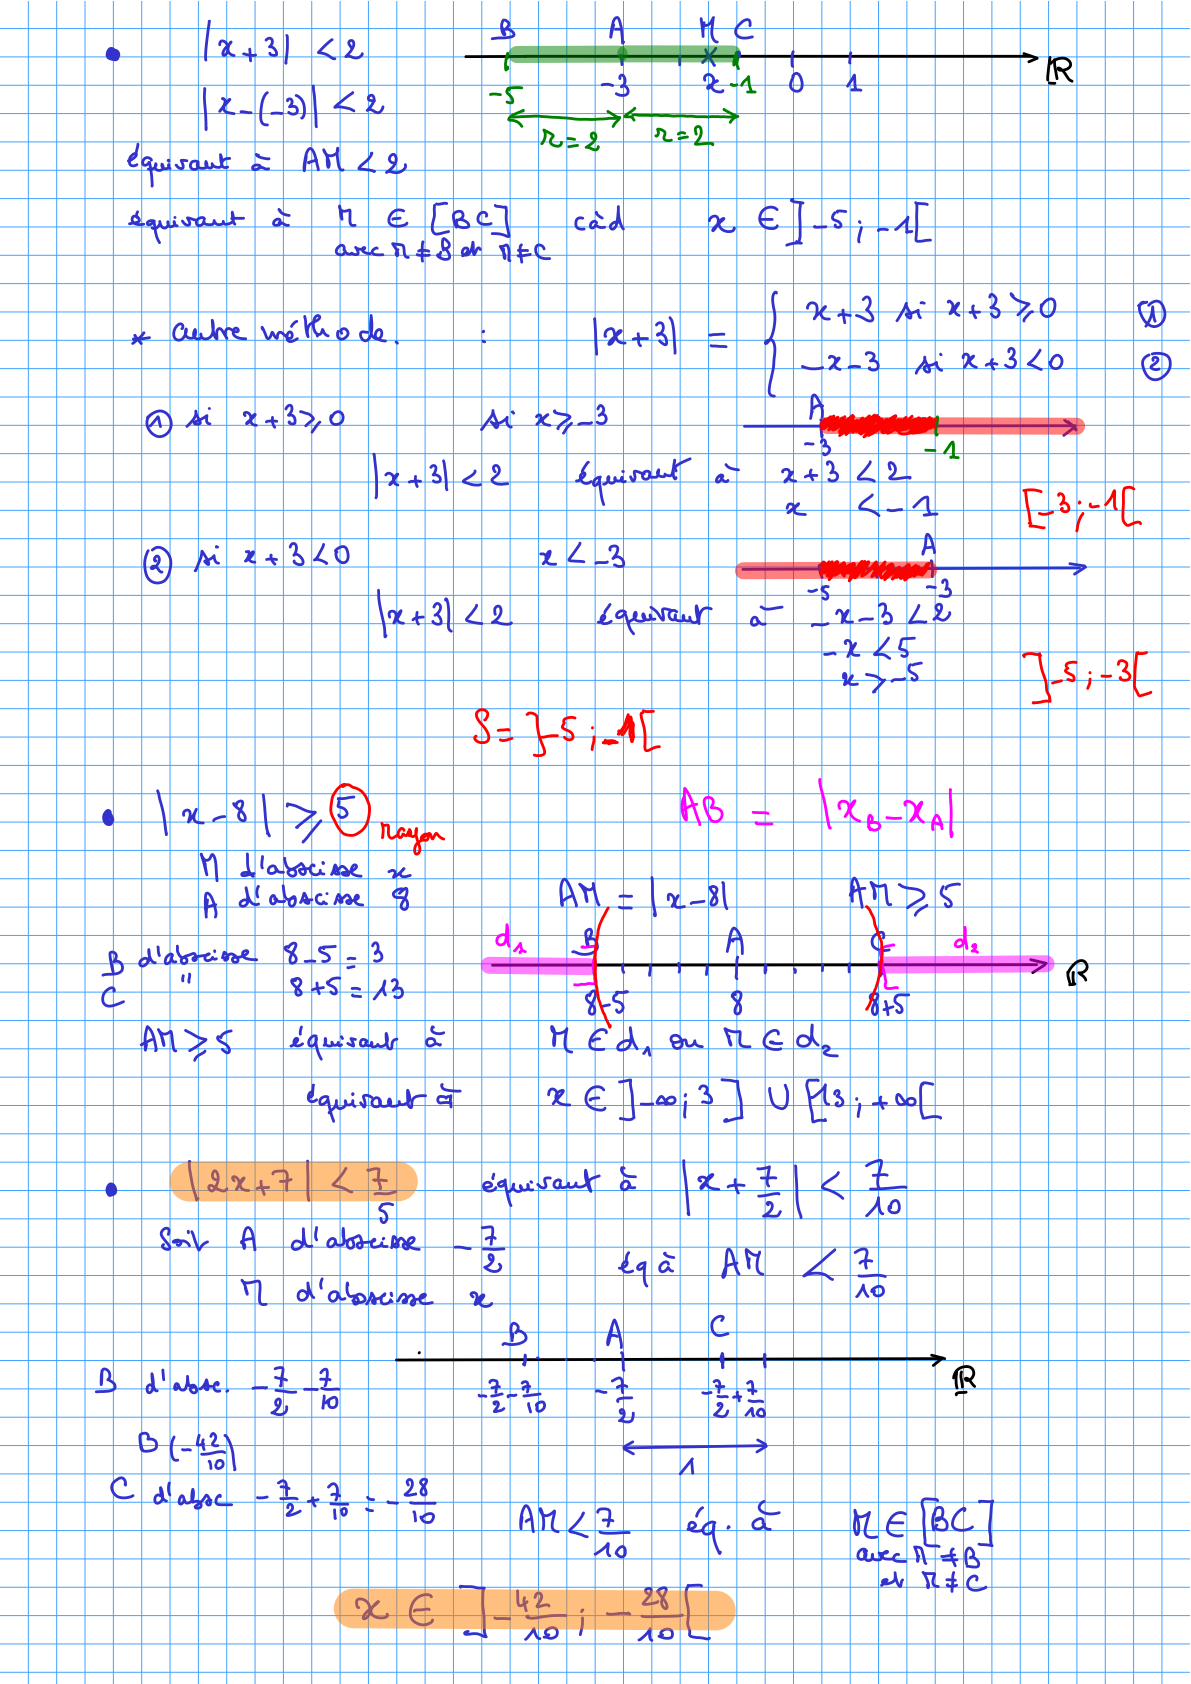 • |x+3| < 2
B A M C
-5 -3 x -1 0 1 ℝ
|x-(-3)| < 2
r=2 r=2
équivaut à AM < 2
équivaut à M ∈ [BC] càd x ∈ ]-5 ; -1[
avec M ≠ B et M ≠ C
* autre méthode. : |x+3| = { x+3 si x+3 ⩾ 0 ①
-x-3 si x+3 < 0 ②
① si x+3 ⩾ 0 si x ⩾ -3
A
-3 -1
|x+3| < 2 équivaut à x+3 < 2
x < -1 [-3 ; -1[
② si x+3 < 0 x < -3
A
-5 -3
|x+3| < 2 équivaut à -x-3 < 2
-x < 5
x > -5 ]-5 ; -3[
S = ]-5 ; -1[
• |x-8| ⩾ 5 rayon
AB = |x_B - x_A|
M d'abscisse x
A d'abscisse 8
AM = |x-8| AM ⩾ 5
B d'abscisse 8-5 = 3
C " 8+5 = 13
d₁ B A C d₂
8-5 8 8+5 ℝ
AM ⩾ 5 équivaut à M ∈ d₁ ou M ∈ d₂
équivaut à x ∈ ]-∞ ; 3] ∪ [13 ; +∞[
• |2x+7| < 7/5 équivaut à |x + 7/2| < 7/10
Soit A d'abscisse -7/2
M d'abscisse x
éq à AM < 7/10
B A C
-7/2 - 7/10 -7/2 -7/2 + 7/10 ℝ
1
B d'absc. -7/2 - 7/10
B (-42/10)
C d'absc -7/2 + 7/10 = -28/10
AM < 7/10 éq. à M ∈ [BC]
avec M ≠ B
et M ≠ C
x ∈ ]-42/10 ; -28/10[